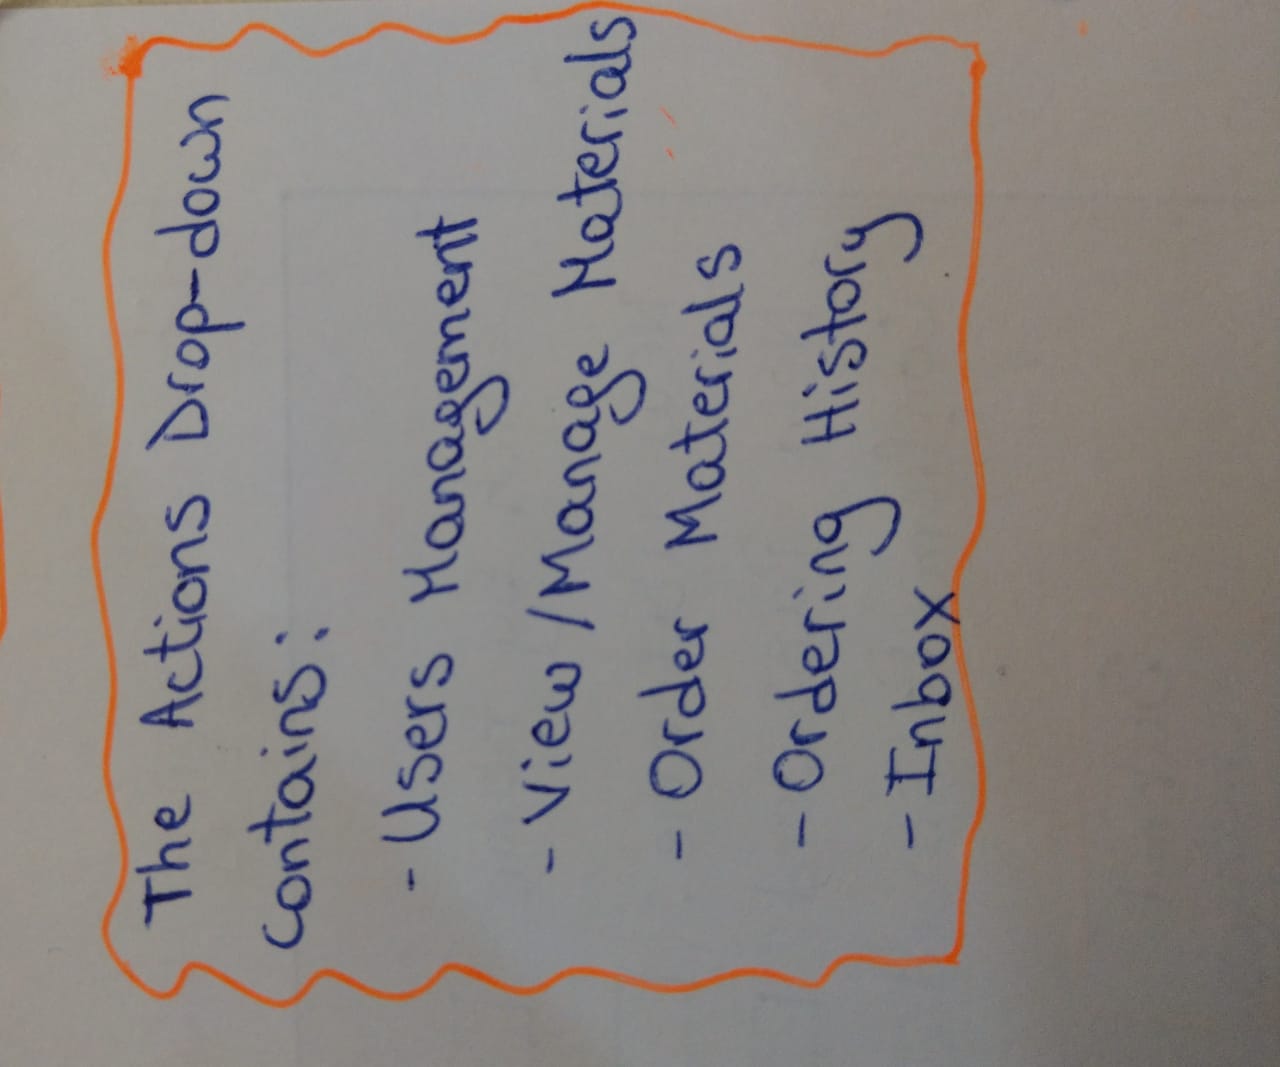 The Actions Drop-down
contains:
- Users Management
- View/Manage Materials
- Order Materials
- Ordering History
- Inbox